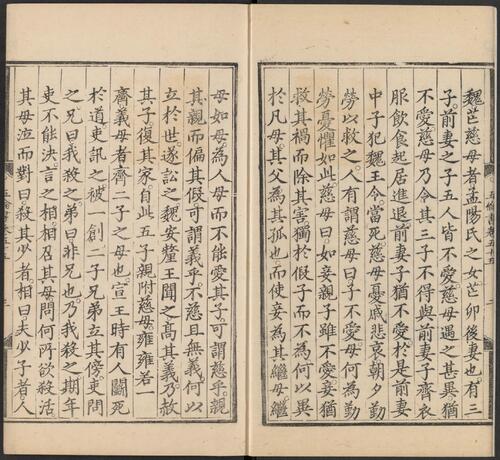 魏芒慈母者孟陽氏之女芒卯後妻也有三
子前妻之子五人皆不愛慈母遇之甚異猶
不愛慈母乃令其三子不得與前妻子齊衣
服飲食起居進退前妻子猶不愛於是前妻
中子犯魏王令當死慈母憂戚悲哀朝夕勤
勞以救之人有謂慈母曰子不愛母何為勤
勞憂懼如此慈母曰如妾親子雖不愛妾猶
救其禍而除其害獨於假子而不為何以異
於凡母其父為其孤也而使妾為其繼母繼
母如母為人母而不能愛其子可謂慈乎親
其親而偏其假可謂義乎不慈且無義何以
立於世遂訟之魏安釐王聞之高其義乃赦
其子復其家自此五子親附慈母雍雍若一
齊義母者齊二子之母也宣王時有人鬭死
於道吏訊之被一創二子兄弟立其傍吏問
之兄曰我殺之弟曰非兄也乃我殺之期年
吏不能決言之相相召其母問何所欲殺活
其母泣而對曰殺其少者相曰夫少子者人